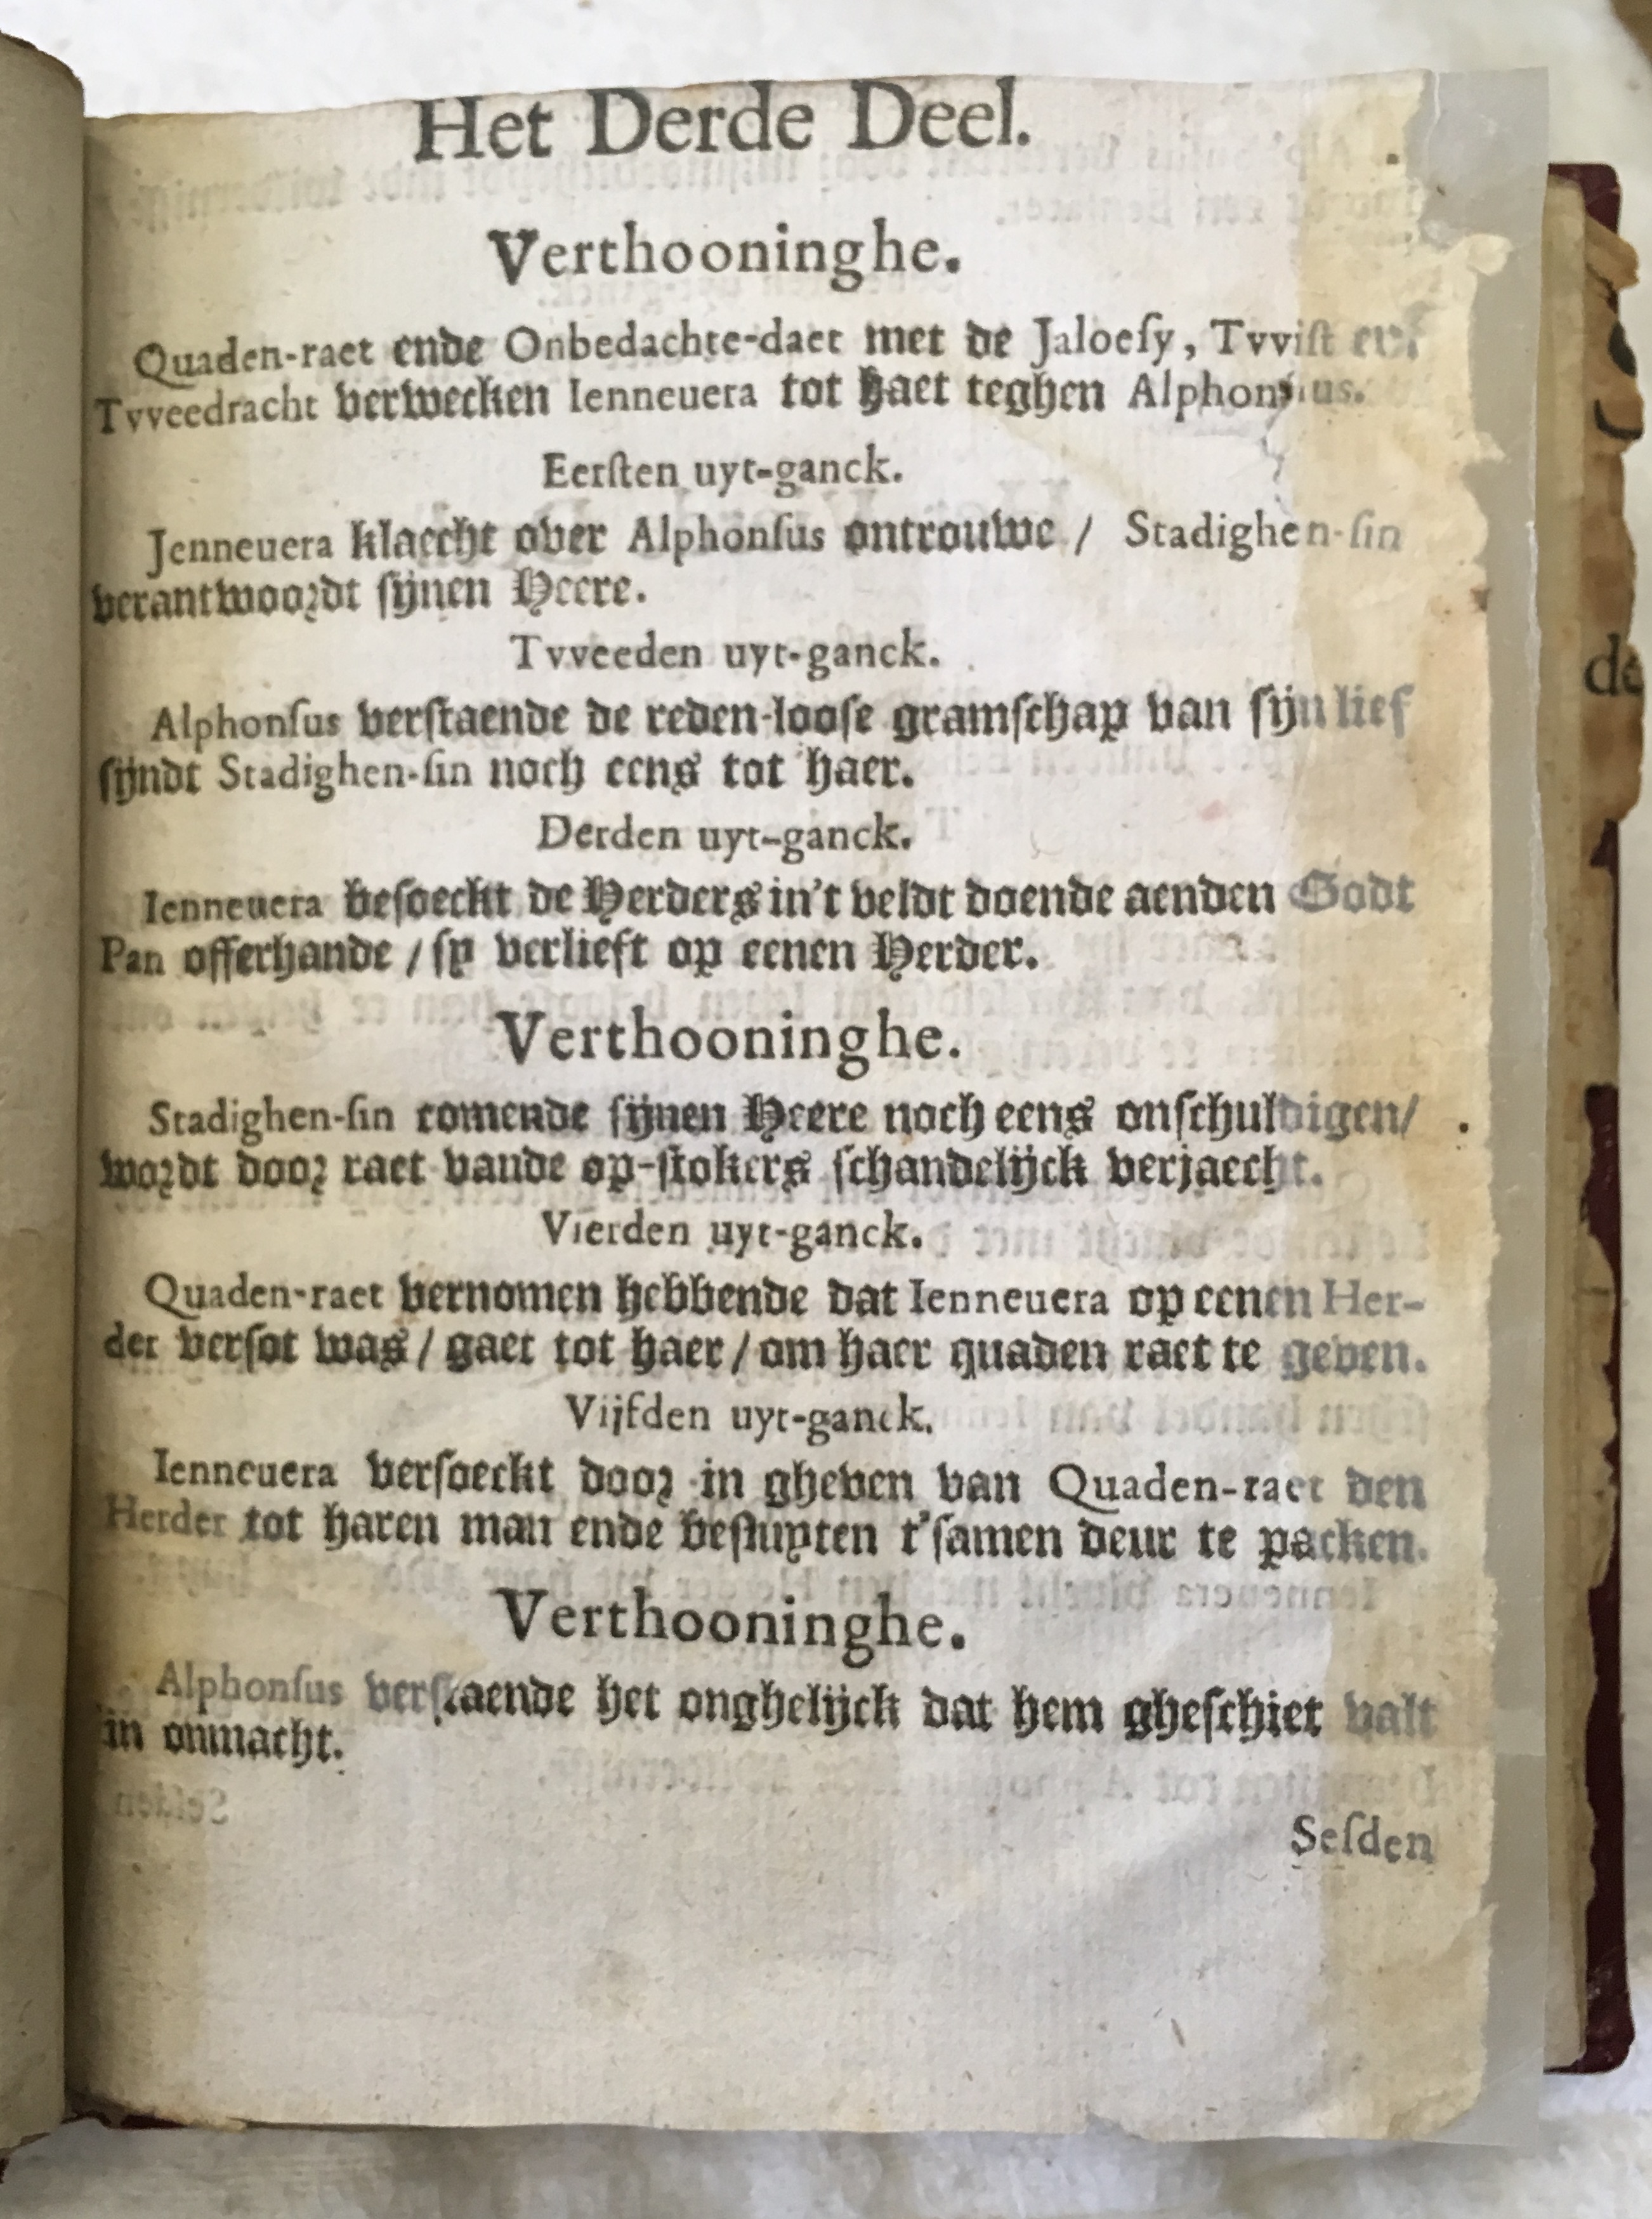 Het Derde Deel.
Verthooninghe.
Quaden-raet ende Onbedachte-daet met de Jaloeſy, Tvviſt
Tvveedracht verwecken Ienneuera tot haet teghen Alphonſus.
Eerſten uyt-ganck.
Jenneuera klaecht over Alphonſus ontrouwe / Stadighen-ſin
verantwoordt ſijnen Heere.
Tvveeden uyt-ganck.
Alphonſus verſtaende de reden-looſe gramſchap van ſijn lief
ſijndt Stadighen-ſin noch eens tot haer.
Derden uyt-ganck.
Ienneuera beſoeckt de Herders in't veldt doende aenden Godt
Pan offerhande / ſy verlieft op eenen Herder.
Verthooninghe.
Stadighen-ſin comende ſijnen Heere noch eens onſchuldigen/
wordt door raet vande op-ſtokers ſchandelijck verjaecht.
Vierden uyt-ganck.
Quaden-raet vernomen hebbende dat Ienneuera op eenen Her-
der verſot was / gaet tot haer / om haer quaden raet te geven.
Vijfden uyt-ganck.
Ienneuera verſoeckt door in gheven van Quaden-raet den
Herder tot haren man ende beſluyten t'ſamen deur te packen.
Verthooninghe.
Alphonſus verſtaende het onghelijck dat hem gheſchiet valt
in onmacht.
Seſden
de